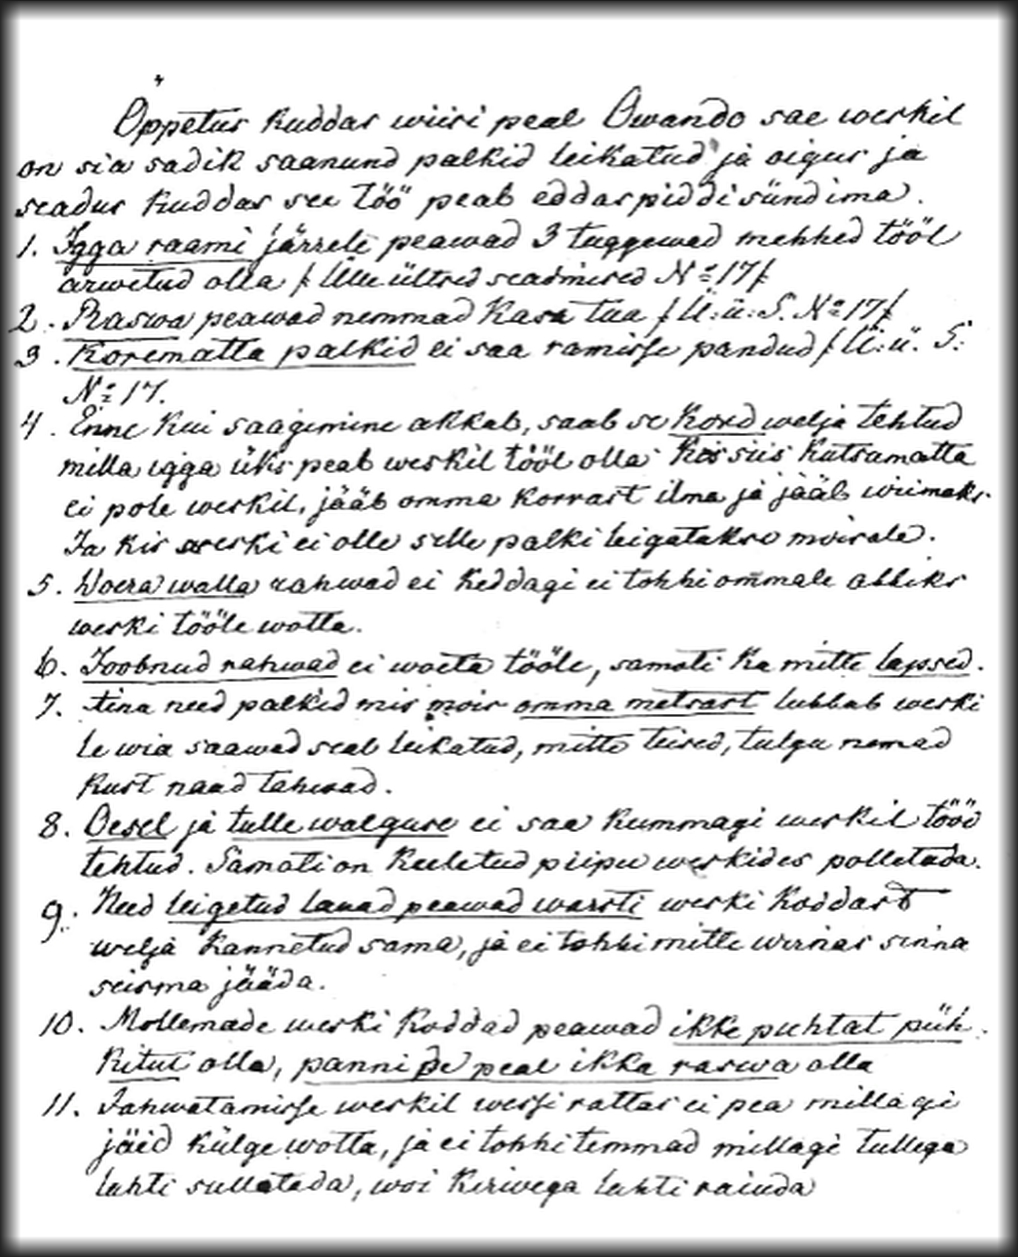 Öppetus kuddas wiisi peal Owando sae weskil
on sia sadik saanund palkid leikatud ja oigus ja
seadus kuddas see töö peab eddaspiddi sündima.
1. Igga raami järrele peawad 3 tuggewad mehhed tööl
arwetud olla /: Ülle ültsed seadmised No 17 :/
2. Raswa peawad nemmad kasa tua /: Ü: ü: S. No 17 :/
3. Korematta palkid ei saa ramisse pandud /: Ü: ü. S:
No 17.
4. Enne kui saagimine akkab, saab se kord welja tehtud
milla igga üks peab weskil tööl olla. Kes siis kutsumatta
ei pole weskil, jääb omma korrast ilma ja jääb wiimaks.
Ja kis weski ei olle selle palki leigatakse moisale.
5. Woera walla rahwad ei keddagi ei tohhi ommale abbiks
weski tööle wotta.
6. Joobnud rahwad ei woeta tööle, samoti ka mitte lapsed.
7. Aina need palkid mis mois omma metsast lubbab weski
le wia saawad seal leikatud, mitte teised, tulgu nemad
kust naad tahwad.
8. Oesel ja tulle walguse ei saa kummagi weskil tööd
tehtud. Samoti on keeletud piipu weskides polletada.
9. Need leigetud lauad peawad warsti weski koddast
welja kannetud sama, ja ei tohhi mitte wirnas sinna
seisma jääda.
10. Mollemade weski koddad peawad ikke puhtat püh
kitut olla, panni de peal ikka raswa olla
11. Jahwatamisse weskil wessi rattas ei pea millagi
jäid külge wotta, ja ei tohhi temmad millagi tullega
lahti sullatada, woi kirwega lahti raiuda